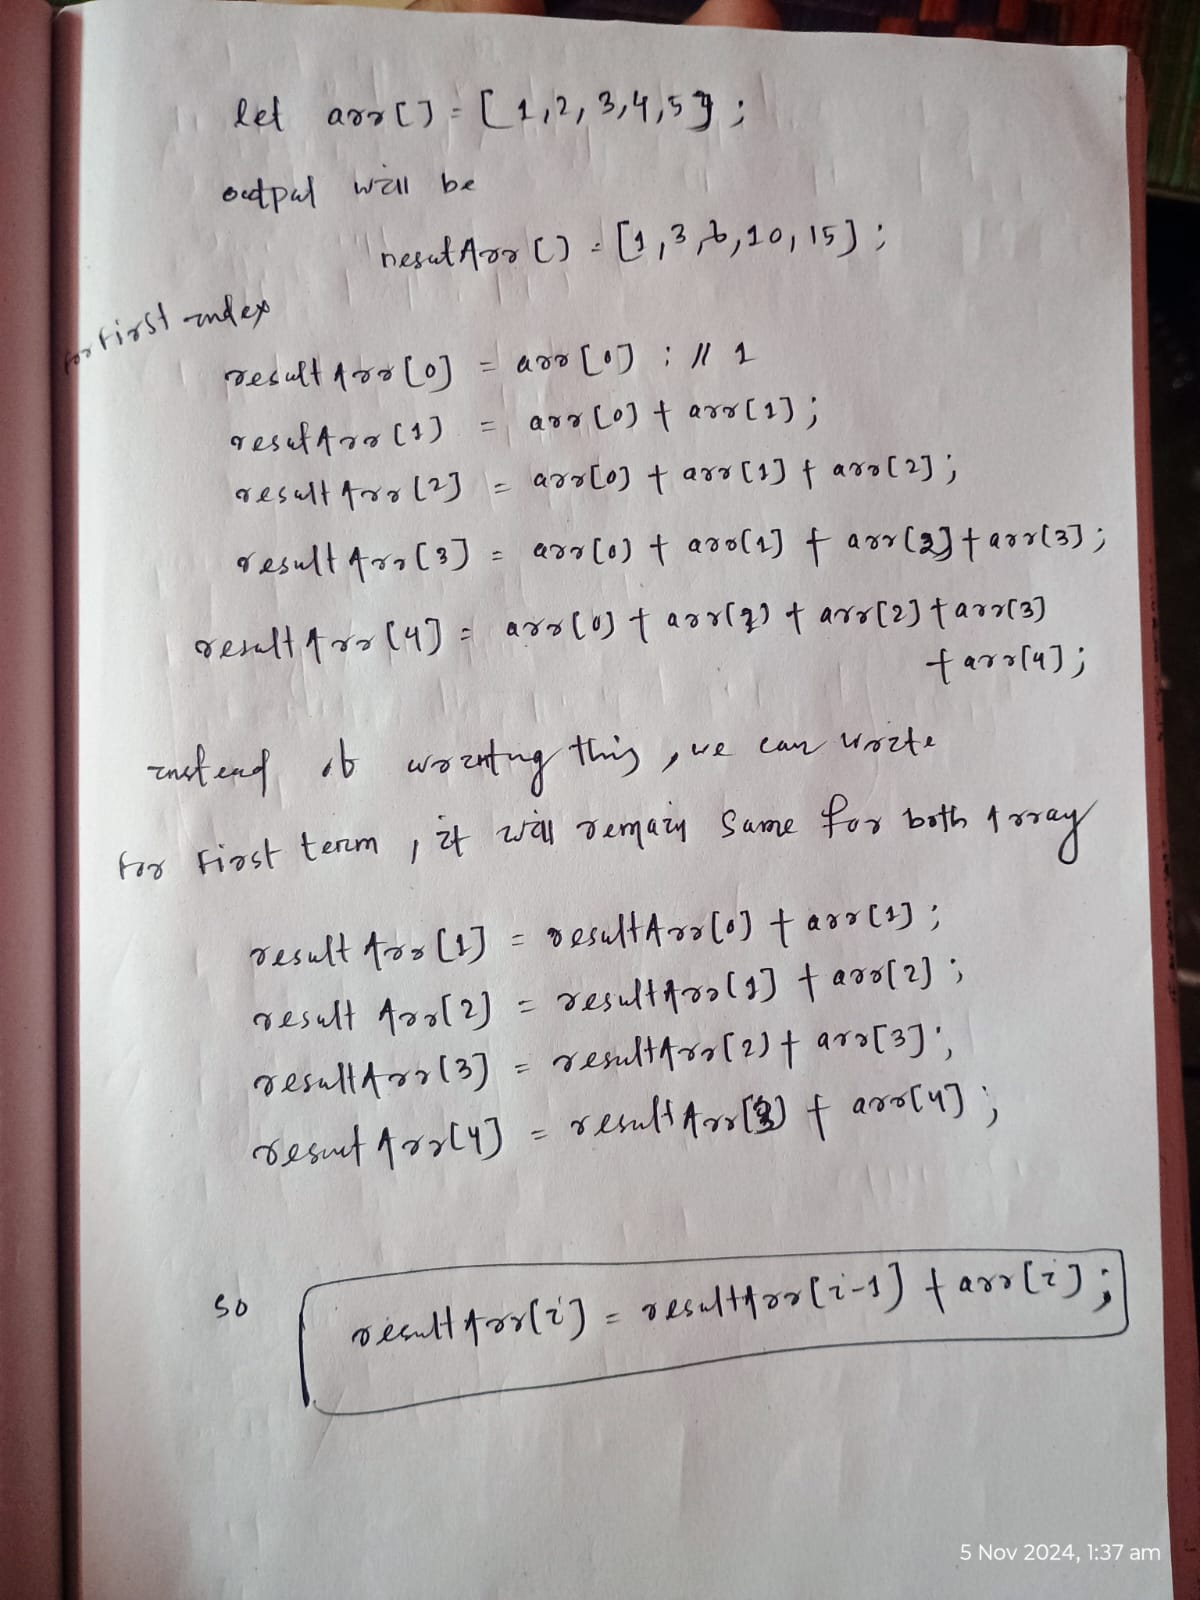 let arr[] = [1,2,3,4,5];
output will be
resutArr[] = [1,3,6,10,15];
for First index
resultArr[0] = arr[0] ; // 1
resutArr[1] = arr[0] + arr[1];
resultArr[2] = arr[0] + arr[1] + arr[2];
resultArr[3] = arr[0] + arr[1] + arr[2] + arr[3];
resultArr[4] = arr[0] + arr[1] + arr[2] + arr[3]
+ arr[4];
instead of writing this, we can write
for first term, it will remain same for both Array
resultArr[1] = resultArr[0] + arr[1];
resultArr[2] = resultArr[1] + arr[2];
resultArr[3] = resultArr[2] + arr[3];
resultArr[4] = resultArr[3] + arr[4];
so resultArr[i] = resultArr[i-1] + arr[i];
5 Nov 2024, 1:37 am